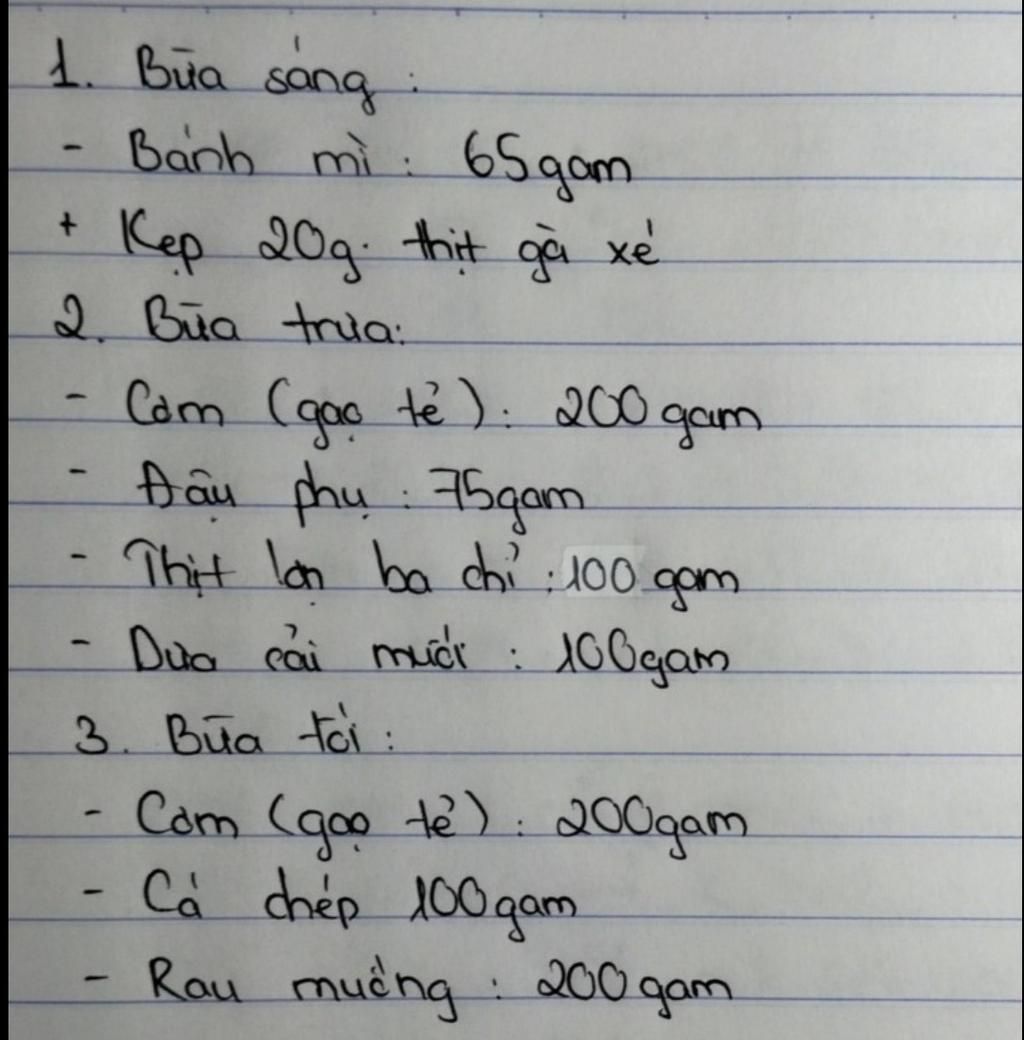 1. Bữa sáng :
- Bánh mì : 65gam
+ Kẹp 20g. thịt gà xé
2. Bữa trưa:
- Cơm (gạo tẻ) : 200gam
- Đậu phụ : 75gam
- Thịt lợn ba chỉ : 100 gam
- Dưa cải muối : 100gam
3. Bữa tối :
- Cơm (gạo tẻ) : 200gam
- Cá chép 100gam
- Rau muống : 200gam